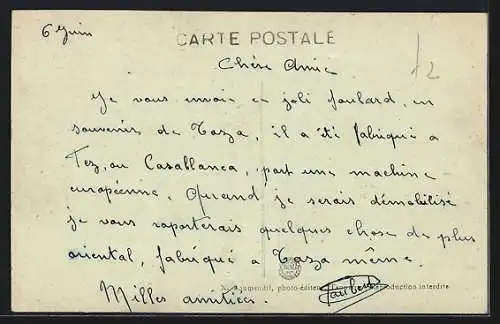 6 Juin
CARTE POSTALE
Chère Amie
Je vous envoie ce joli foulard, en
souvenir de Taza, il a été fabriqué a
Fez, ou Casablanca, part une machine
européenne. Quand je serais démobilisé
je vous raporterais quelques chose de plus
oriental, fabriqué a Taza même.
photo-éditeur, Reproduction interdite
Milles amitiées.
12